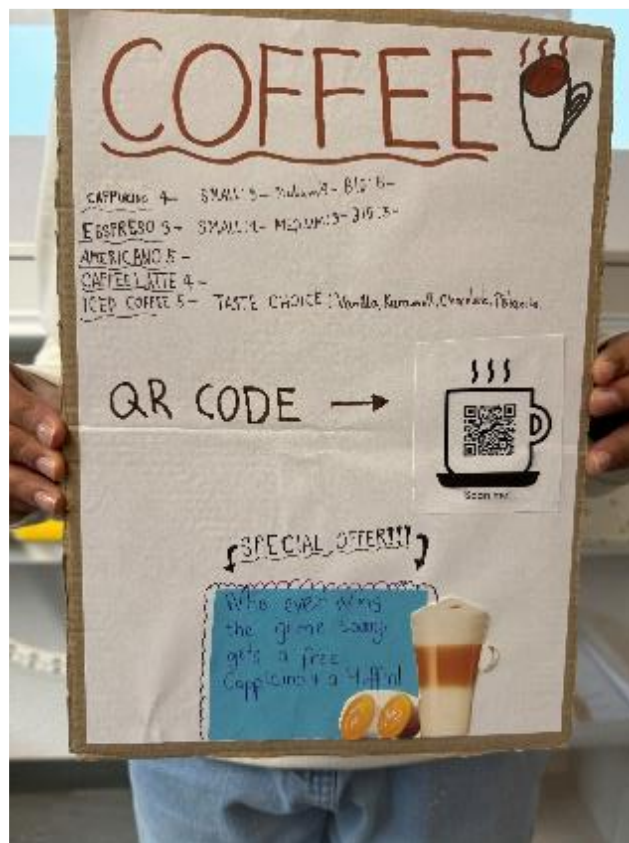 COFFEE
CAPPUCINO 4- SMALL: 3- Medium: 4- BIG: 5-
ESSPRESO 3- SMALL: 2- MEDIUM: 3- BIG: 5-
AMERICANO 5-
CAFFE LATTE 4-
ICED COFFEE 5- TASTE CHOICE: Vanilla, Karamell, Chocolate,
QR CODE →
Scan me!
SPECIAL OFFER!!!
Who ever wins
the game today
gets a free
Cappucino + a Muffin!